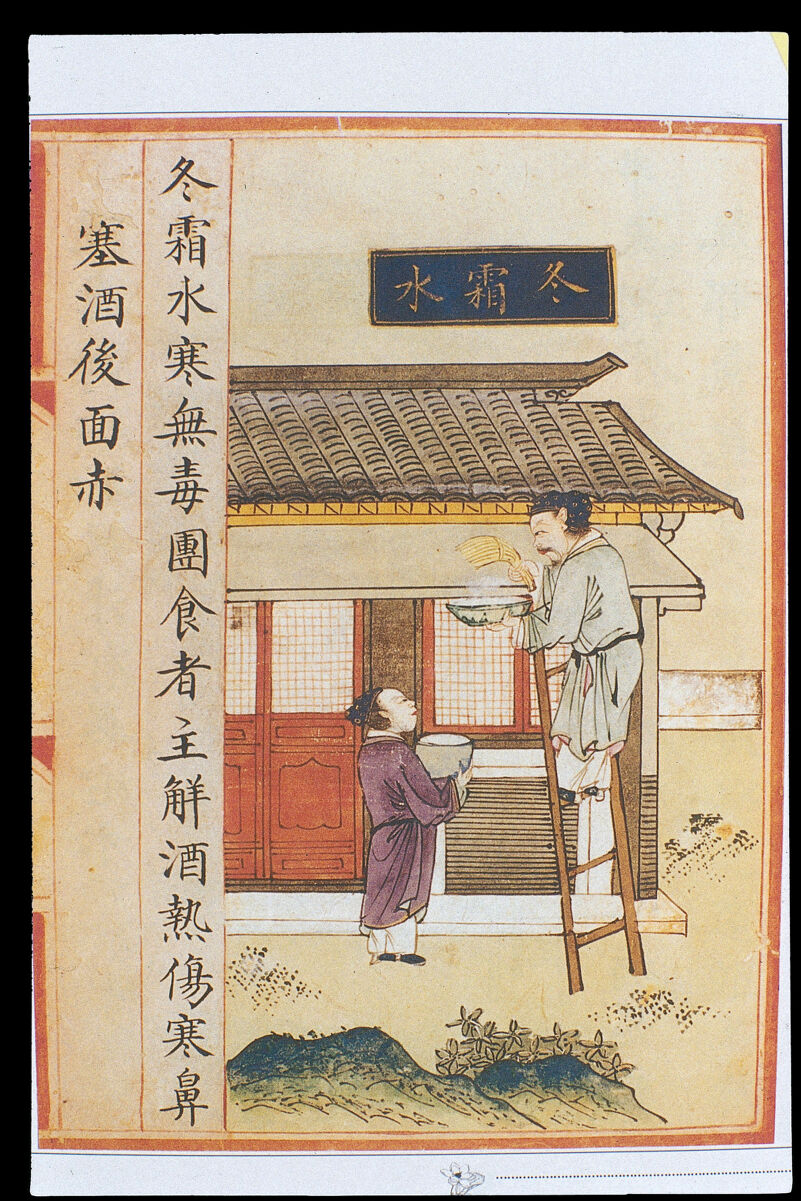 冬霜水
冬霜水寒無毒團食者主解酒熱傷寒鼻
塞酒後面赤